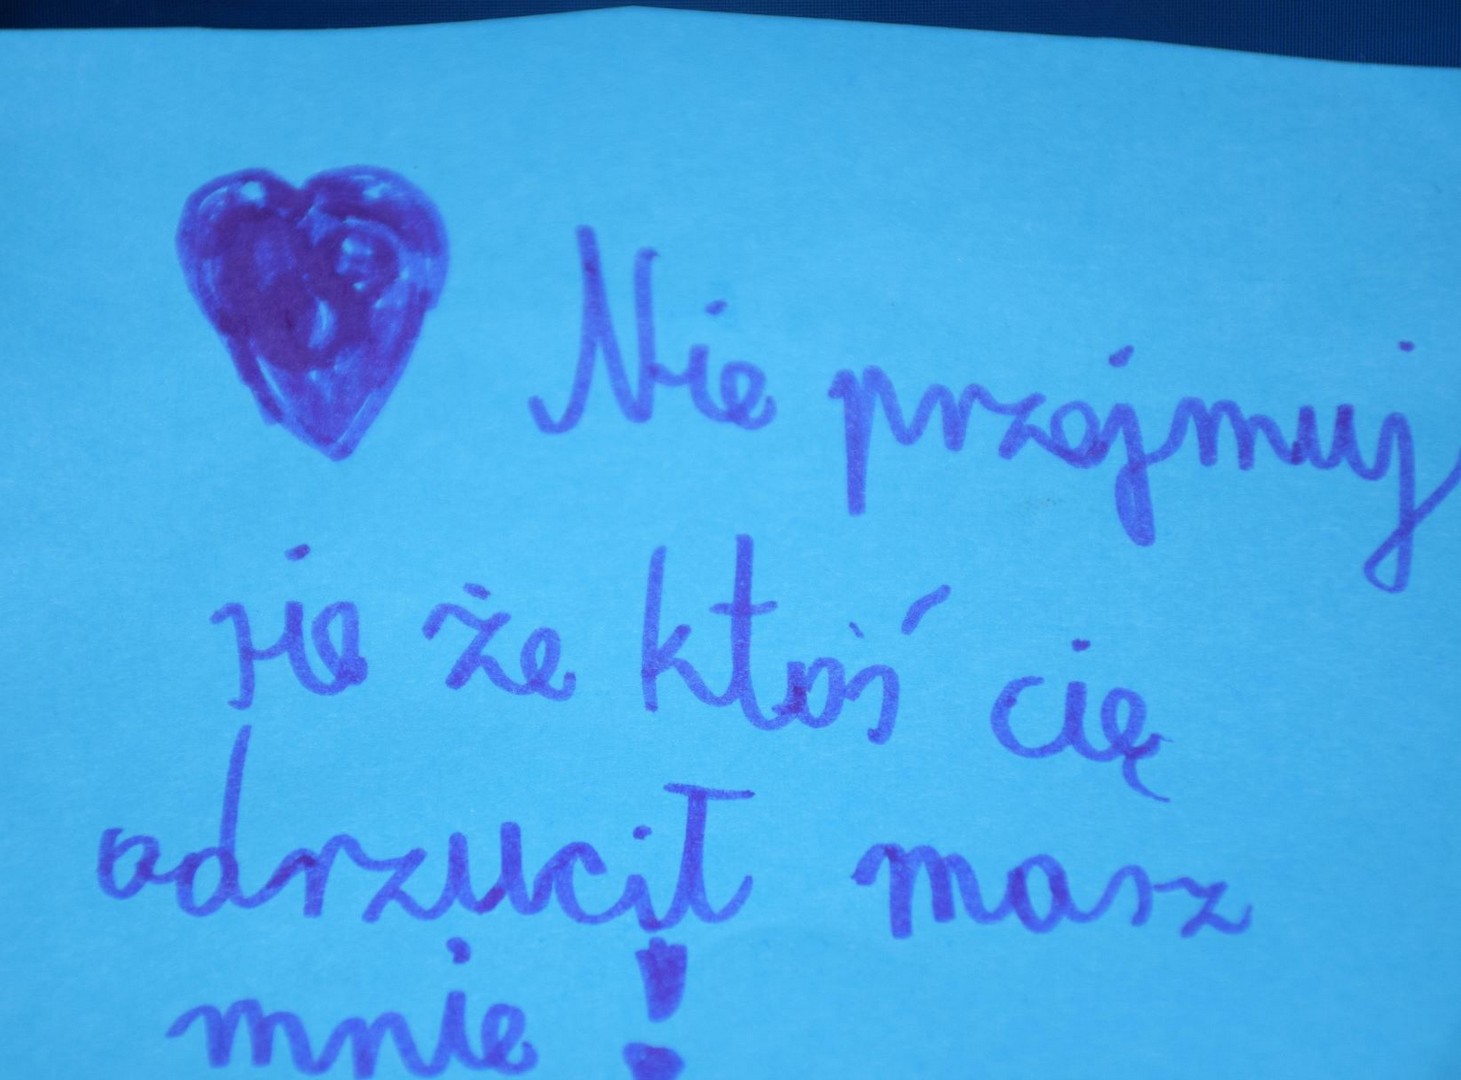 Nie przejmuj
się że ktoś cię
odrzucił masz
mnie!